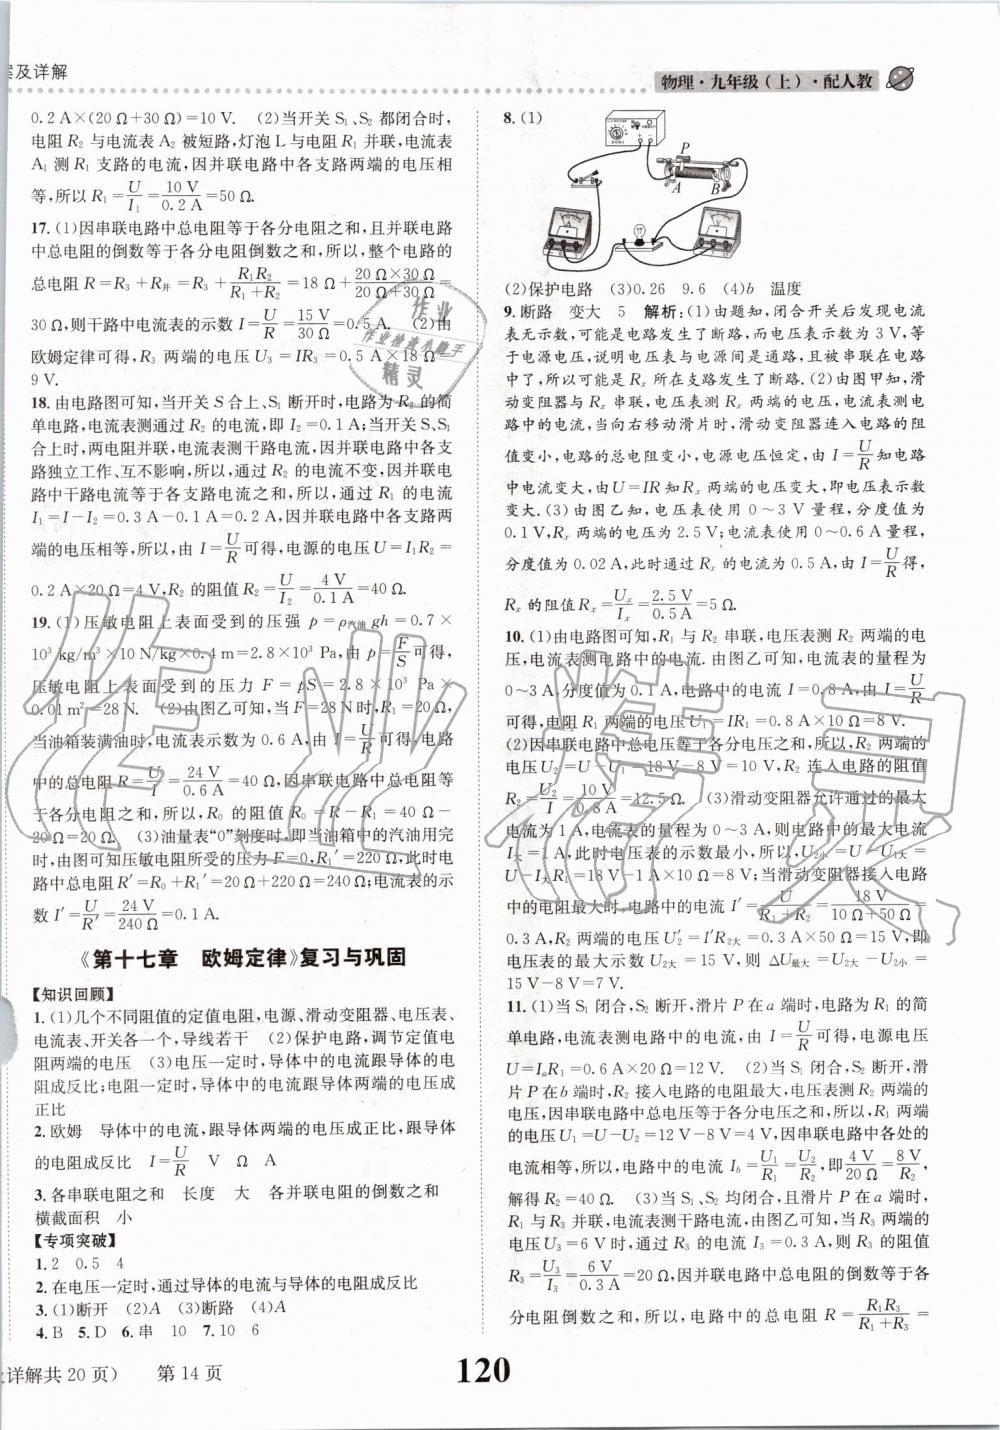 案及详解
物理·九年级(上)·配人教
0.2 A×(20 Ω+30 Ω)=10 V. (2)当开关 S₁、S₂ 都闭合时,
电阻 R₂ 与电流表 A₂ 被短路,灯泡 L 与电阻 R₁ 并联,电流表
A₁ 测 R₁ 支路的电流,因并联电路中各支路两端的电压相
等,所以 R₁=U/I₁=10 V/0.2 A=50 Ω.
17.(1)因串联电路中总电阻等于各分电阻之和,且并联电路
中总电阻的倒数等于各分电阻倒数之和,所以,整个电路的
总电阻 R=R₃+R并=R₃+R₁R₂/(R₁+R₂)=18 Ω+(20 Ω×30 Ω)/(20 Ω+30 Ω)=
30 Ω,则干路中电流表的示数 I=U/R=15 V/30 Ω=0.5 A. (2)由
欧姆定律可得,R₃ 两端的电压 U₃=IR₃=0.5 A×18 Ω=
9 V.
18.由电路图可知,当开关 S 合上、S₁ 断开时,电路为 R₂ 的简
单电路,电流表测通过 R₂ 的电流,即 I₂=0.1 A;当开关 S、S₁
合上时,两电阻并联,电流表测干路电流,因并联电路中各支
路独立工作、互不影响,所以,通过 R₂ 的电流不变,因并联电
路中干路电流等于各支路电流之和,所以,通过 R₁ 的电流
I₁=I-I₂=0.3 A-0.1 A=0.2 A,因并联电路中各支路两
端的电压相等,所以,由 I=U/R可得,电源的电压 U=I₁R₁=
0.2 A×20 Ω=4 V,R₂ 的阻值 R₂=U/I₂=4 V/0.1 A=40 Ω.
19.(1)压敏电阻上表面受到的压强 p=ρ汽油gh=0.7×
10³ kg/m³×10 N/kg×0.4 m=2.8×10³ Pa,由 p=F/S可得,
压敏电阻上表面受到的压力 F=pS=2.8×10³ Pa×
0.01 m²=28 N. (2)由图乙可知,当 F=28 N时,R₁=20 Ω,
当油箱装满油时,电流表示数为 0.6 A,由 I=U/R可得,电路
中的总电阻 R=U/I=24 V/0.6 A=40 Ω,因串联电路中总电阻等
于各分电阻之和,所以,R₀ 的阻值 R₀=R-R₁=40 Ω-
20 Ω=20 Ω. (3)油量表“0”刻度时,即当油箱中的汽油用完
时,由图可知压敏电阻所受的压力 F=0,R₁′=220 Ω,此时电
路中总电阻 R′=R₀+R₁′=20 Ω+220 Ω=240 Ω;电流表的示
数 I′=U/R′=24 V/240 Ω=0.1 A.
《第十七章 欧姆定律》复习与巩固
【知识回顾】
1.(1)几个不同阻值的定值电阻,电源、滑动变阻器、电压表、
电流表、开关各一个,导线若干 (2)保护电路,调节定值电
阻两端的电压 (3)电压一定时,导体中的电流跟导体的电
阻成反比;电阻一定时,导体中的电流跟导体两端的电压成
正比
2.欧姆 导体中的电流,跟导体两端的电压成正比,跟导体
的电阻成反比 I=U/R V Ω A
3.各串联电阻之和 长度 大 各并联电阻的倒数之和
横截面积 小
【专项突破】
1.2 0.5 4
2.在电压一定时,通过导体的电流与导体的电阻成反比
3.(1)断开 (2)A (3)断路 (4)A
4.B 5.D 6.串 10 7.10 6
8.(1)
P
A B
A
V
(2)保护电路 (3)0.26 9.6 (4)b 温度
9.断路 变大 5 解析:(1)由题知,闭合开关后发现电流
表无示数,可能是电路发生了断路,而电压表示数为 3 V,等
于电源电压,说明电压表与电源间是通路,且被串联在电路
中了,所以可能是 Rₓ 所在支路发生了断路. (2)由图甲知,滑
动变阻器与 Rₓ 串联,电压表测 Rₓ 两端的电压,电流表测电
路中的电流,当向右移动滑片时,滑动变阻器连入电路的阻
值变小,电路的总电阻变小,电源电压恒定,由 I=U/R知电路
中电流变大,由 U=IR知 Rₓ 两端的电压变大,即电压表示数
变大. (3)由图乙知,电压表使用 0～3 V 量程,分度值为
0.1 V,Rₓ 两端的电压为 2.5 V;电流表使用 0～0.6 A 量程,
分度值为 0.02 A,此时通过 Rₓ 的电流为 0.5 A,由 I=U/R得,
Rₓ 的阻值 Rₓ=Uₓ/Iₓ=2.5 V/0.5 A=5 Ω.
10.(1)由电路图可知,R₁ 与 R₂ 串联,电压表测 R₂ 两端的电
压,电流表测电路中的电流. 由图乙可知,电流表的量程为
0～3 A,分度值为 0.1 A,电路中的电流 I=0.8 A,由 I=U/R
可得,电阻 R₁ 两端的电压 U₁=IR₁=0.8 A×10 Ω=8 V.
(2)因串联电路中总电压等于各分电压之和,所以,R₂ 两端的
电压 U₂=U-U₁=18 V-8 V=10 V,R₂ 连入电路的阻值
R₂=U₂/I=10 V/0.8 A=12.5 Ω. (3)滑动变阻器允许通过的最大
电流为 1 A,电流表的量程为 0～3 A,则电路中的最大电流
I大=1 A,此时电压表的示数最小,所以,U₂小=U-U₁大=
U-I大R₁=18 V-1 A×10 Ω=8 V;当滑动变阻器接入电路
中的电阻最大时,电路中的电流 I′=U/(R₁+R₂)=18 V/(10 Ω+50 Ω)=
0.3 A,R₂ 两端的电压 U₂′=I′R₂大=0.3 A×50 Ω=15 V,即
电压表的最大示数 U₂大=15 V,则 ΔU最大=U₂大-U₂小=
15 V-8 V=7 V.
11.(1)当 S₁ 闭合,S₂ 断开,滑片 P 在 a 端时,电路为 R₁ 的简
单电路,电流表测电路中的电流,由 I=U/R可得,电源电压
U=IₐR₁=0.6 A×20 Ω=12 V. (2)当 S₁ 闭合,S₂ 断开,滑
片 P 在 b 端时,R₂ 接入电路的电阻最大,电压表测 R₂ 两端的
电压,因串联电路中总电压等于各分电压之和,所以,R₁ 两端
的电压 U₁=U-U₂=12 V-8 V=4 V,因串联电路中各处的
电流相等,所以,电路中的电流 I_b=U₁/R₁=U₂/R₂,即4 V/20 Ω=8 V/R₂,
解得 R₂=40 Ω. (3)当 S₁、S₂ 均闭合,且滑片 P 在 a 端时,
R₁ 与 R₃ 并联,电流表测干路电流,由图乙可知,当 R₃ 两端的
电压 U₃=6 V 时,通过的电流 I₃=0.3 A,则 R₃ 的阻值
R₃=U₃/I₃=6 V/0.3 A=20 Ω,因并联电路中总电阻的倒数等于各
分电阻倒数之和,所以,电路中的总电阻 R=R₁R₃/(R₁+R₃)=
作业
作业检查小助手
精灵
作业精灵
详解共 20 页) 第 14 页
120